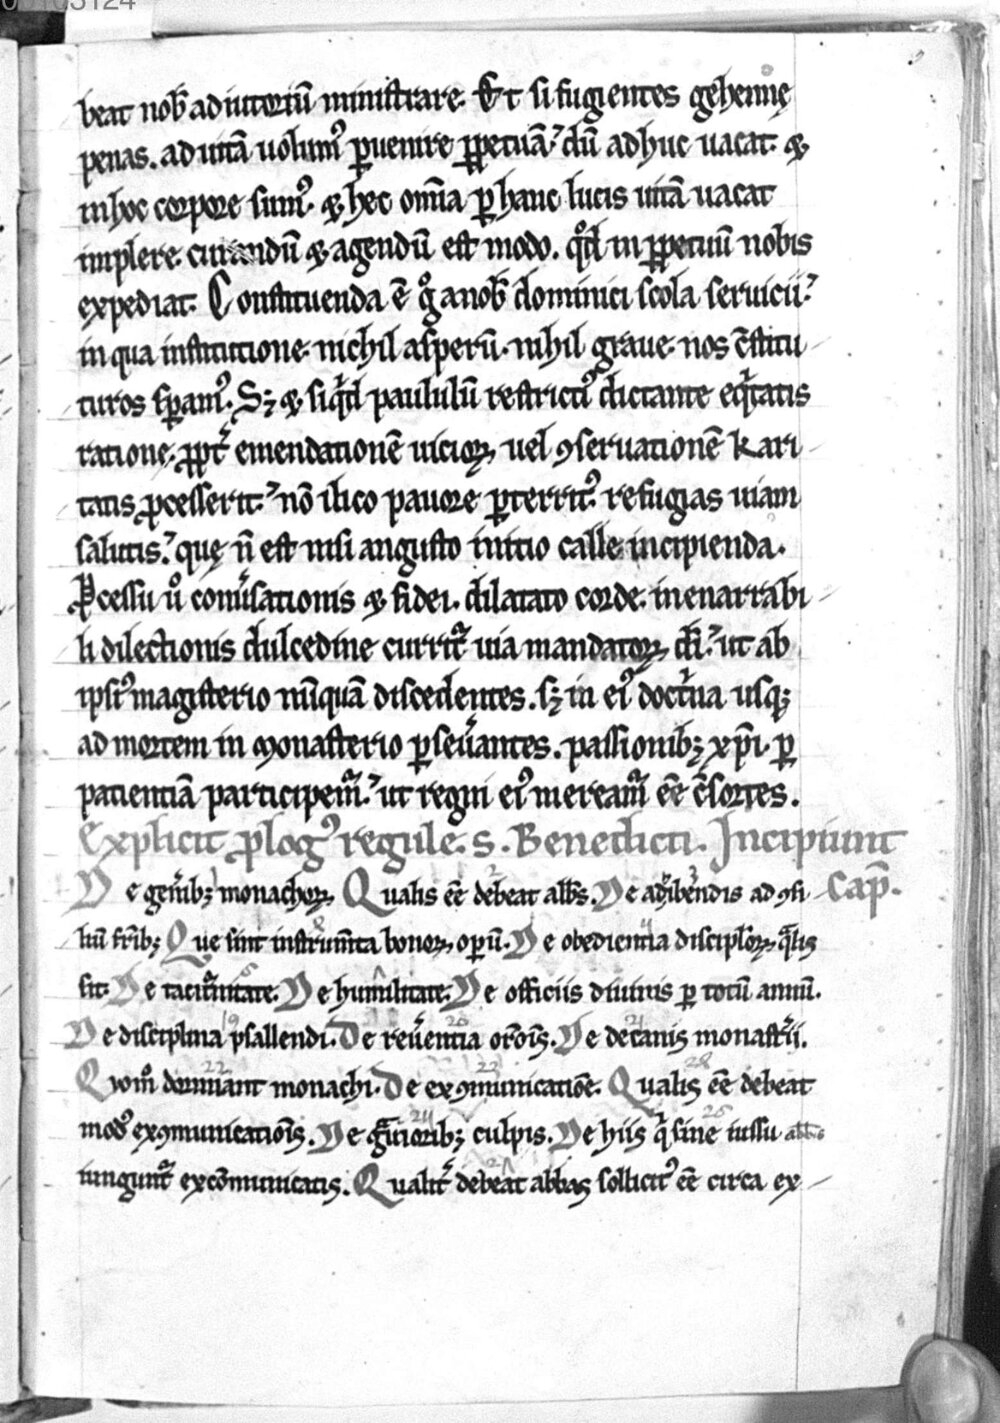 00103124
beat nob̄ adiutoriū ministrare. Et si fugientes gehennę
penas. ad uitā uolumꝰ ꝑuenire ꝑpetuā. dū adhuc uacat. ⁊
inhoc corpore sumꝰ. ⁊ hec om̄ia ꝑ hanc lucis uitā uacat
implere. currendū ⁊ agendū est modo. qd̾ in ꝑpetuū nobis
expediat. Constituenda ē gͦ anob̄ dominici scola seruicii.
in qua institutione. nichil asperū. nihil graue. nos c̄stitu
turos sꝑamꝰ. Sꝫ ⁊ siqͥd paululū restrictiꝰ dictante eqͥtatis
ratione. ꝓpt̾ emendationē uicioꝝ, uel ꝯseruationē kari
tatis ꝓcesserit. nō ilico pauore ꝑterritꝰ. refugias uiam
salutis. quę n̄ est nisi angusto initio calle incipienda.
Ꝓcessu uͦ conu̾sationis ⁊ fidei. dilatato corde. inenarrabi
li dilectionis dulcedine currit̾ uia mandatoꝝ, di̅. ut ab
ipsiꝰ magisterio nūquā discedentes. sꝫ in eiꝰ doctͥna usqꝫ
ad mortem in monasterio ꝑseu̾antes. passionibꝫ xp̄i. ꝑ
patientiā participem̾. ut regni eiꝰ meream̾ eē c̄sortes.
Explicit ꝓlogꝰ regule. s. Benedicti. Incipiunt
Cap̄.
De gen̾ibꝫ monachoꝝ, Qualis eē debeat abb̄s. De adhibendis ad ꝯsi
liū fr̄ibꝫ Que sint instrum̄ta bonoꝝ, opeꝝ. De obedientia disciploꝝ, qͣlis
sit. De taciturnitate. De humilitate. De officiis diuinis ꝑ totū annū.
De disciplina psallendi. De reu̾entia or̄ois. De decanis monast̾ii.
Qͦom̄ dormiant monachi. De exꝯmunicatiōe. Qualis eē debeat
modꝰ exꝯmunicatiōis. De gͣuioribꝫ culpis. De hiis qͥ sine iussu abb̄is
iungunt̾ excōmunicatis. Qualit̾ debeat abbas sollicitꝰ eē circa ex